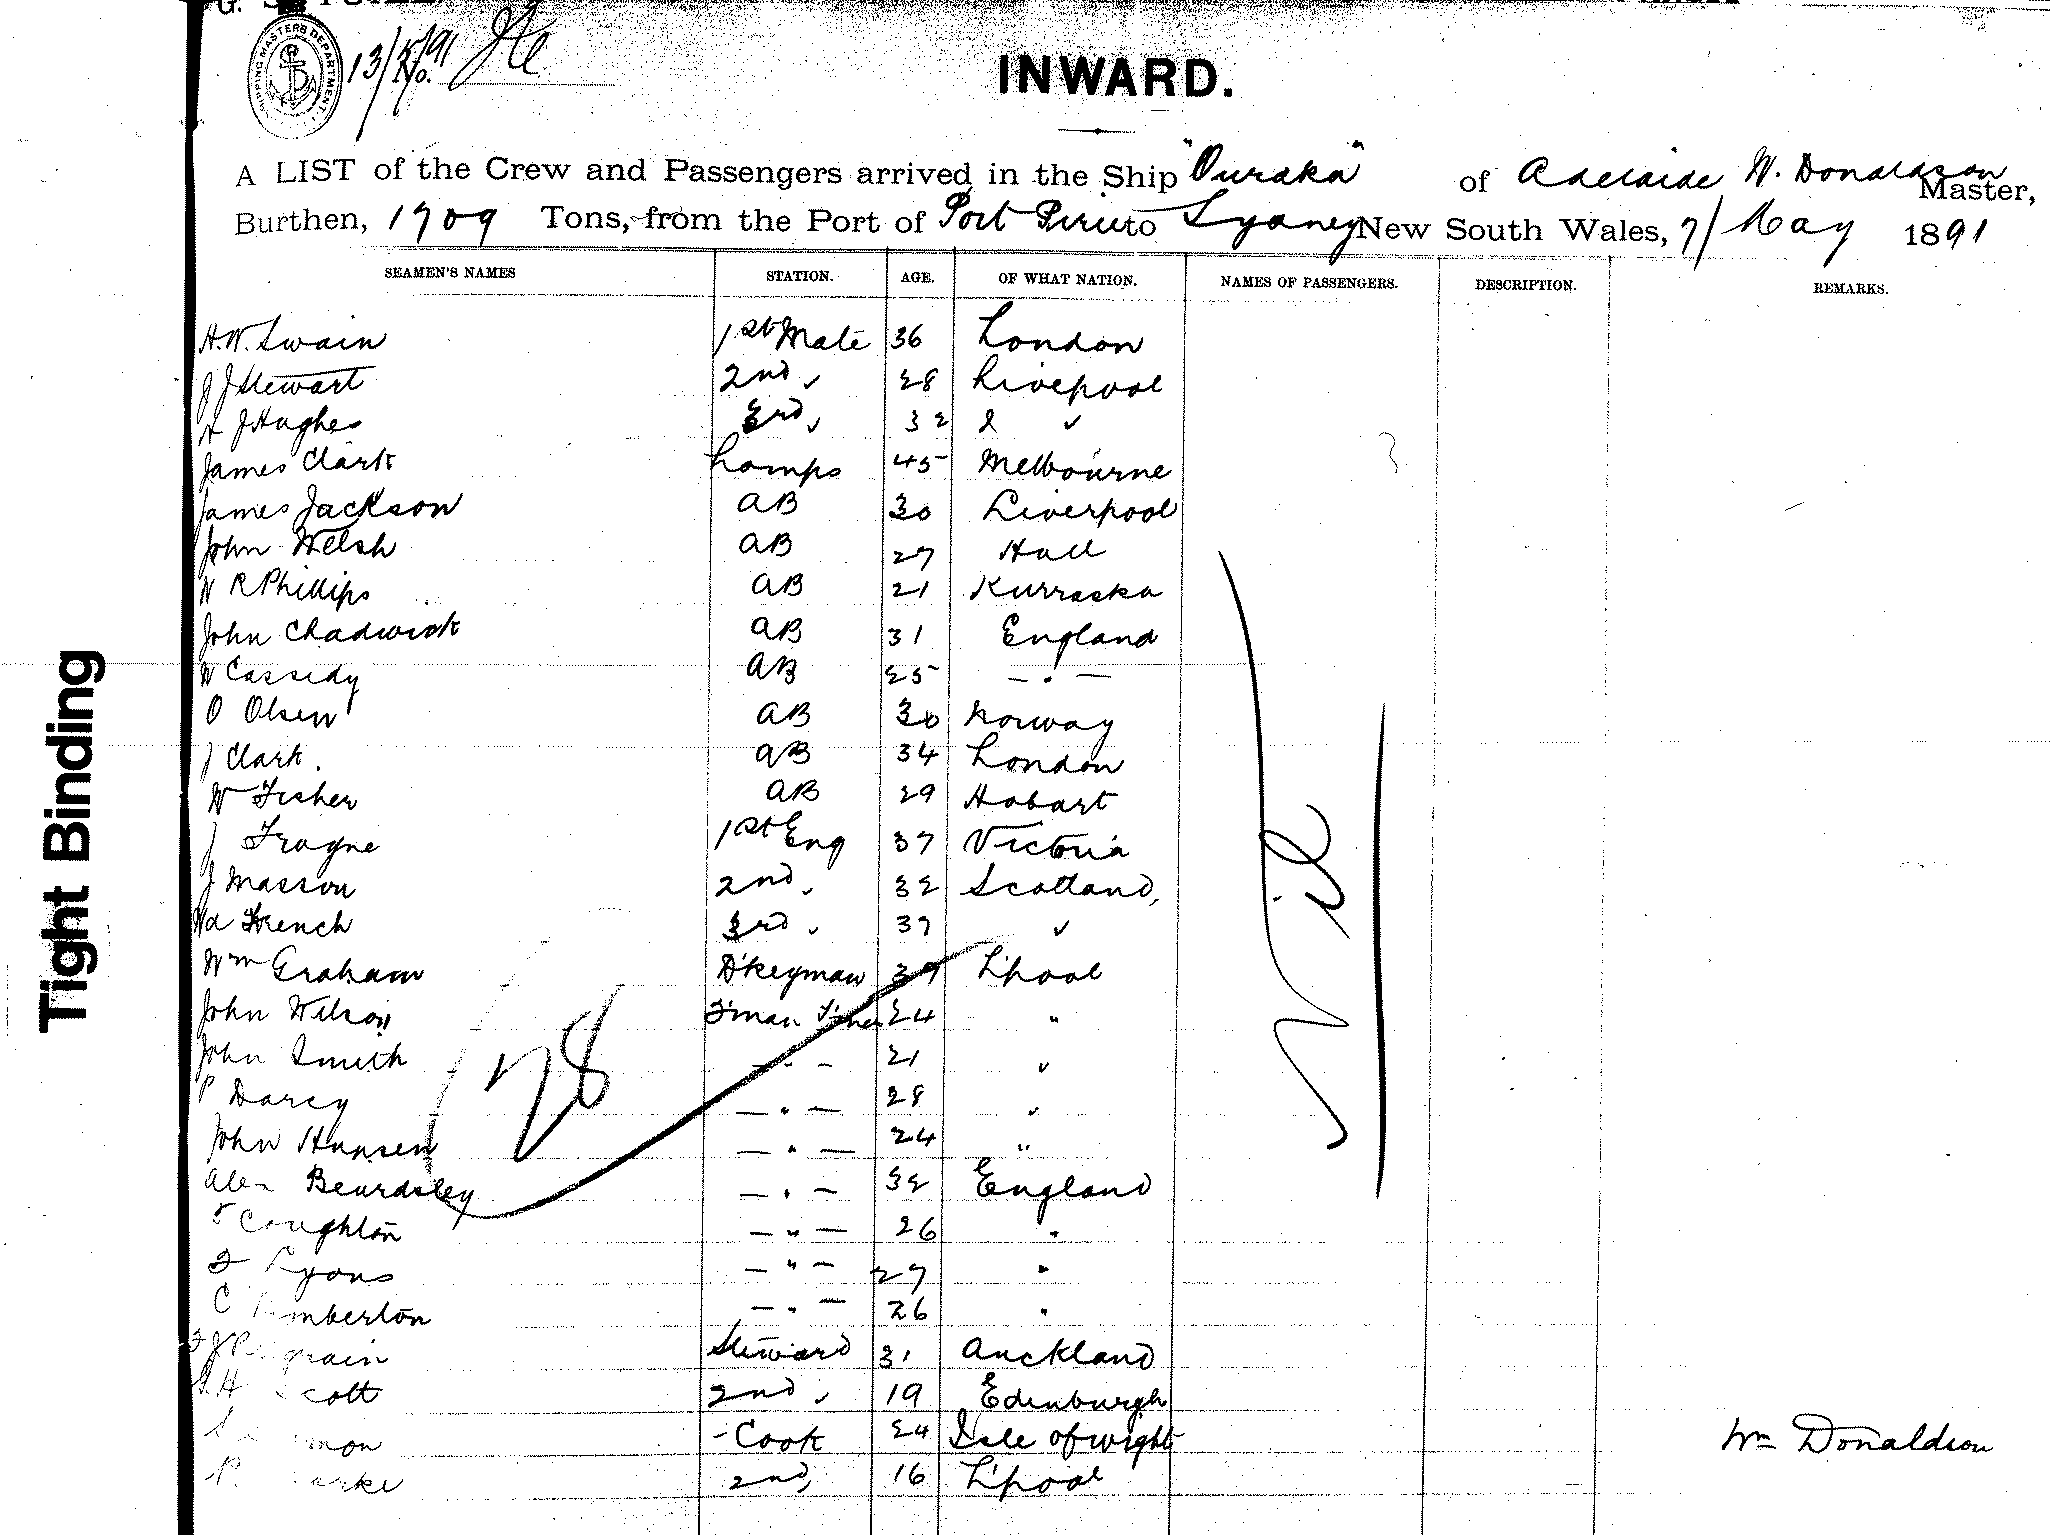 SHIPPING MASTERS DEPARTMENT
13/5/91
No.
INWARD.
A LIST of the Crew and Passengers arrived in the Ship "Ouraka" of Adelaide W. Donaldson Master,
Burthen, 1709 Tons, from the Port of Port Pirie to Sydney New South Wales, 7/ May 1891
SEAMEN'S NAMES STATION. AGE. OF WHAT NATION. NAMES OF PASSENGERS. DESCRIPTION. REMARKS.
H.W. Swain 1st Mate 36 London
J J Stewart 2nd " 28 Liverpool
H J Hughes 3rd " 32 "
James Clark Lamps 45 Melbourne
James Jackson AB 30 Liverpool
John Welsh AB 27 Hull
W R Phillips AB 21 Kurraska
John Chadwick AB 31 England
W Cassidy AB 25 — " —
O Olsen AB 30 Norway
J Clark. AB 34 London
W Fisher AB 29 Hobart
J Frayne 1st Eng 37 Victoria
J Masson 2nd " 32 Scotland,
French 3rd " 37 "
Wm Graham D'keyman 39 L'pool
John Wilson F'man 24 "
John Smith — " — 21 "
P Darcy — " — 28 "
John Hansen — " — 24 "
Alex Beardsley — " — 32 England
Coughlon — " — 26 "
Lyons — " — 27 "
C — " — 26 "
Steward 31 Auckland
H Scott 2nd " 19 Edinburgh
Cook 24 Isle of wight
P. 2nd " 16 L'pool
Nil
28
Wm Donaldson
Tight Binding